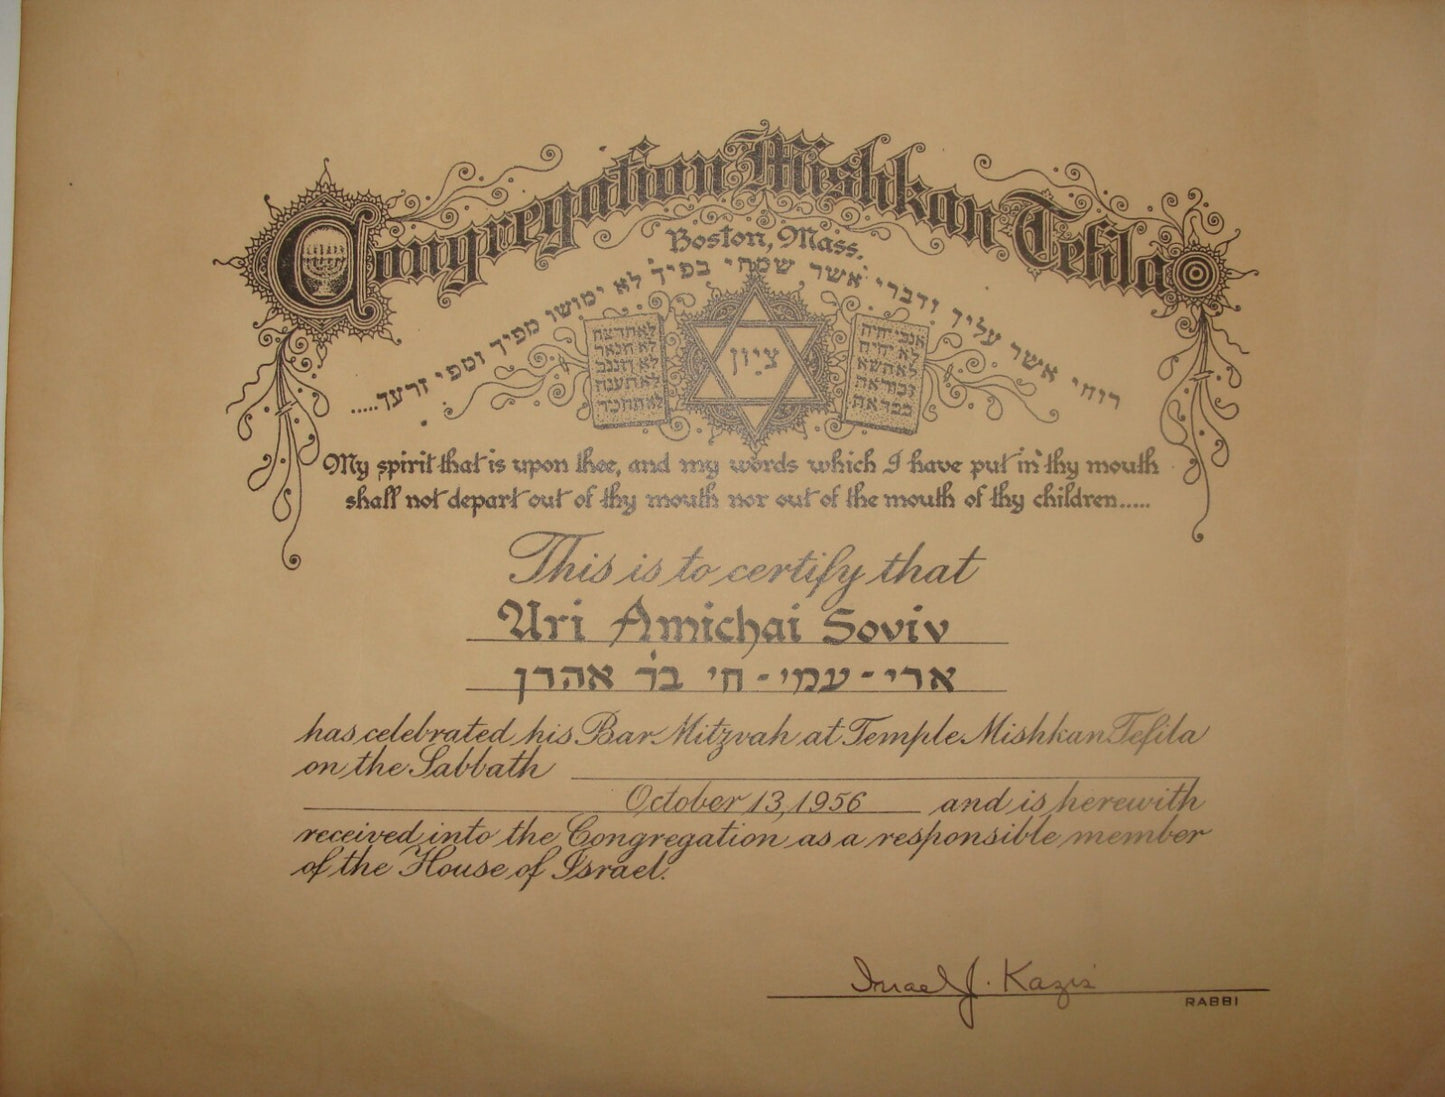 Congregation Mishkan Tefila
Boston, Mass.
רוחי אשר עליך ודברי אשר שמתי בפיך לא ימושו מפיך ומפי זרעך.....
אנכי יהיה
לא יהיה
לא תשא
זכור את
כבד את
ציון
לא תרצח
לא תנאף
לא תגנב
לא תענה
לא תחמד
My spirit that is upon thee, and my words which I have put in thy mouth
shall not depart out of thy mouth nor out of the mouth of thy children.....
This is to certify that
Uri Amichai Soviv
ארי - עמי - חי בר אהרן
has celebrated his Bar Mitzvah at Temple Mishkan Tefila
on the Sabbath
October 13, 1956 and is herewith
received into the Congregation as a responsible member
of the House of Israel.
Israel J. Kazis
RABBI